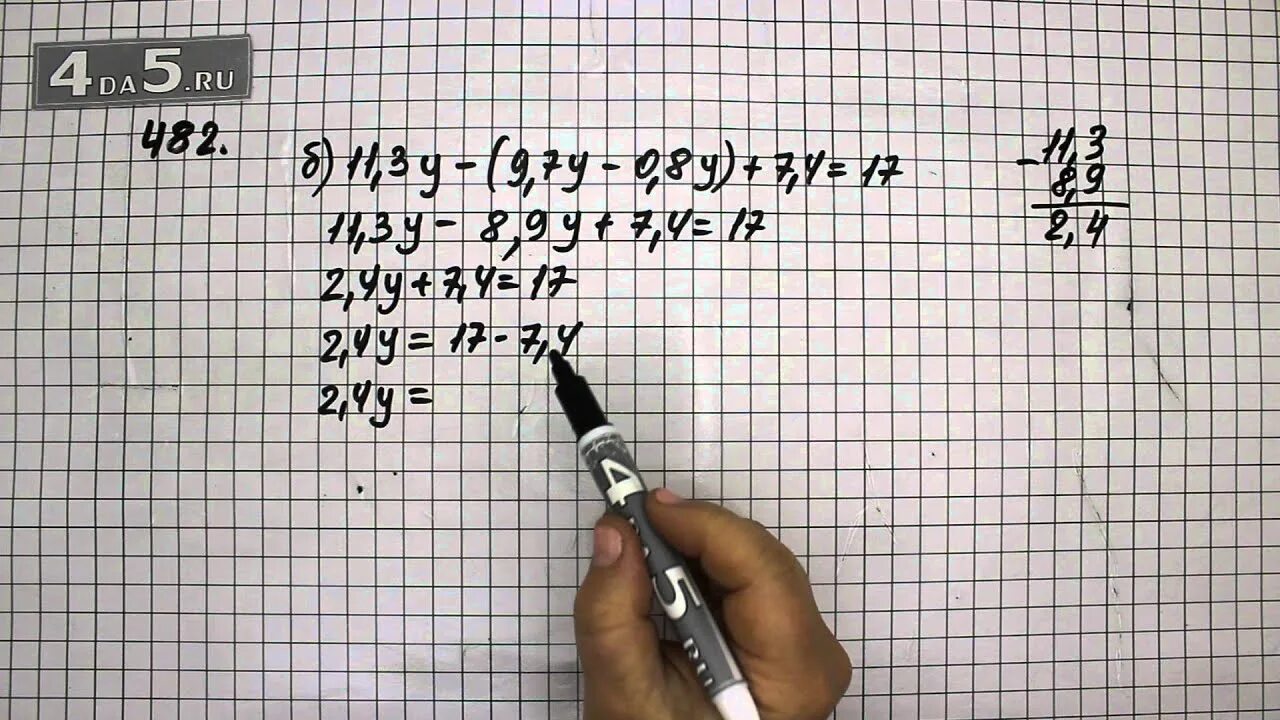 4DA5.RU
482.
б) 11,3y - (9,7y - 0,8y) + 7,4 = 17
11,3y - 8,9y + 7,4 = 17
2,4y + 7,4 = 17
2,4y = 17 - 7,4
2,4y =
- 11,3
8,9
2,4